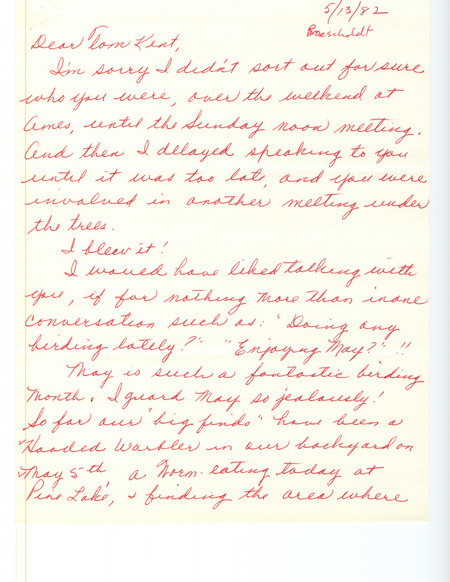 5/13/82
Proescholdt
Dear Tom Kent,
I'm sorry I didn't sort out for sure
who you were, over the weekend at
Ames, until the Sunday noon meeting.
And then I delayed speaking to you
until it was too late, and you were
involved in another meeting under
the trees.
I blew it!
I would have liked talking with
you, if for nothing more than inane
conversation such as: "Doing any
birding lately?" "Enjoyng May?" !!
May is such a fantastic birding
month. I guard May so jealously!
So far our "big finds" have been a
Hooded Warbler in our backyard on
May 5th, a Worm-eating today at
Pine Lake, & finding the area where